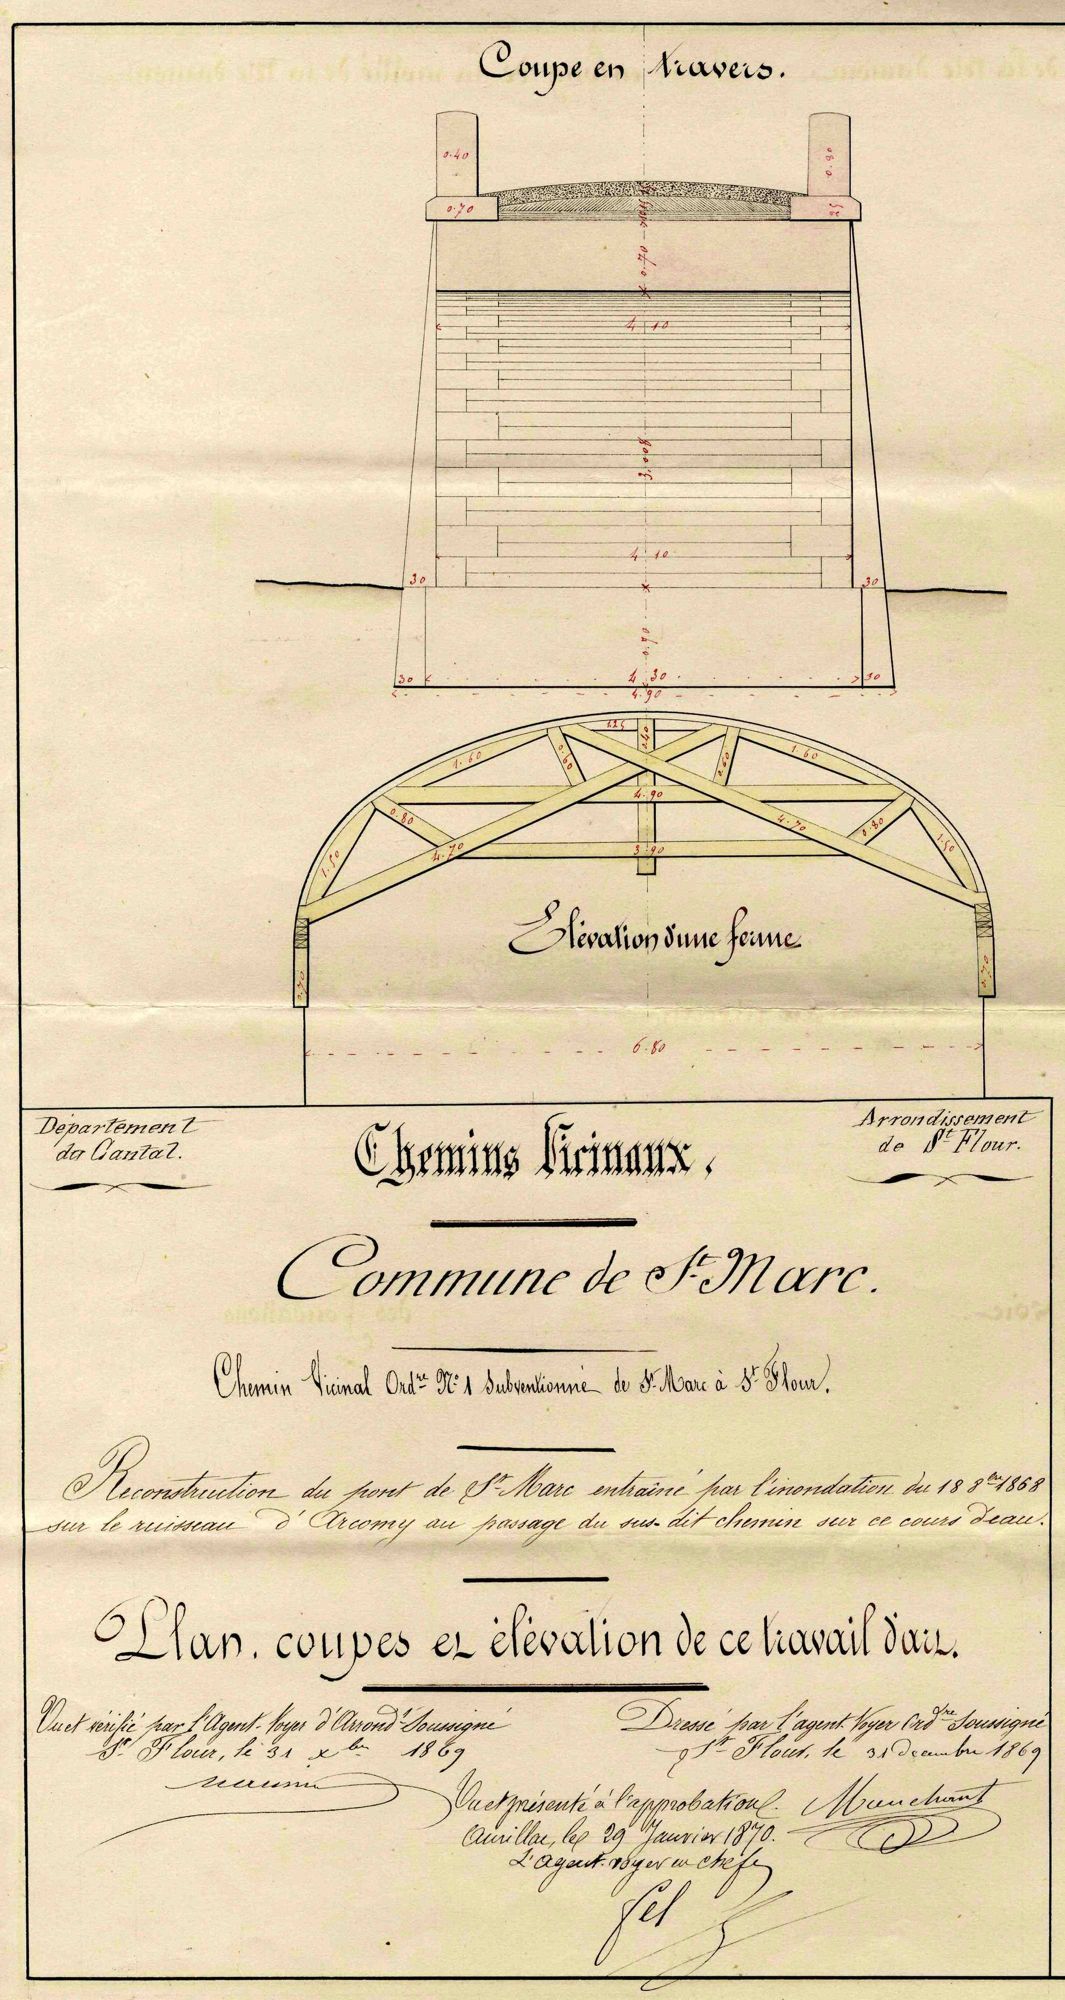 Coupe en travers.
0.40
0.80
0.70
0.70
4.10
3.00
4.10
30
30
30
4.30
30
4.90
1.60
0.60
1.60
0.80
4.90
4.70
0.80
1.50
4.70
3.90
1.50
Elévation d'une ferme
6.80
Département
du Cantal.
Arrondissement
de St Flour.
Chemins Vicinaux,
Commune de St Marc.
Chemin Vicinal Ordre No 1 Subventionné de St Marc à St Flour.
Reconstruction du pont de St Marc entrainé par l'inondation du 18 8bre 1868
sur le ruisseau d'Arcomy au passage du sus-dit chemin sur ce cours d'eau.
Plan, coupes et élévation de ce travail d'art.
Vu et vérifié par l'Agent-Voyer d'Arrondt Soussigné
St Flour, le 31 Xbre 1869
Dressé par l'agent Voyer Ordre Soussigné
St Flour, le 31 décembre 1869
Vu et présenté à l'approbation.
Aurillac, le 29 Janvier 1870.
L'agent-voyer en chef,